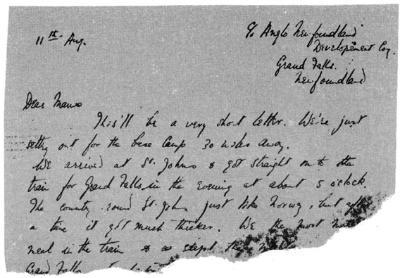 11th Aug.
c/o Anglo Newfoundland
Development Coy.
Grand Falls.
Newfoundland
Dear Mama
This'll be a very short letter. We're just
setting out for the base camp 20 miles away.
We arrived at St. Johns & got straight on to the
train for Grand Falls in the evening at about 5 o'clock.
The country round St. John just like Norway, but after
a time it got much thicker. We the most
meal in the train & so slept
Grand Falls